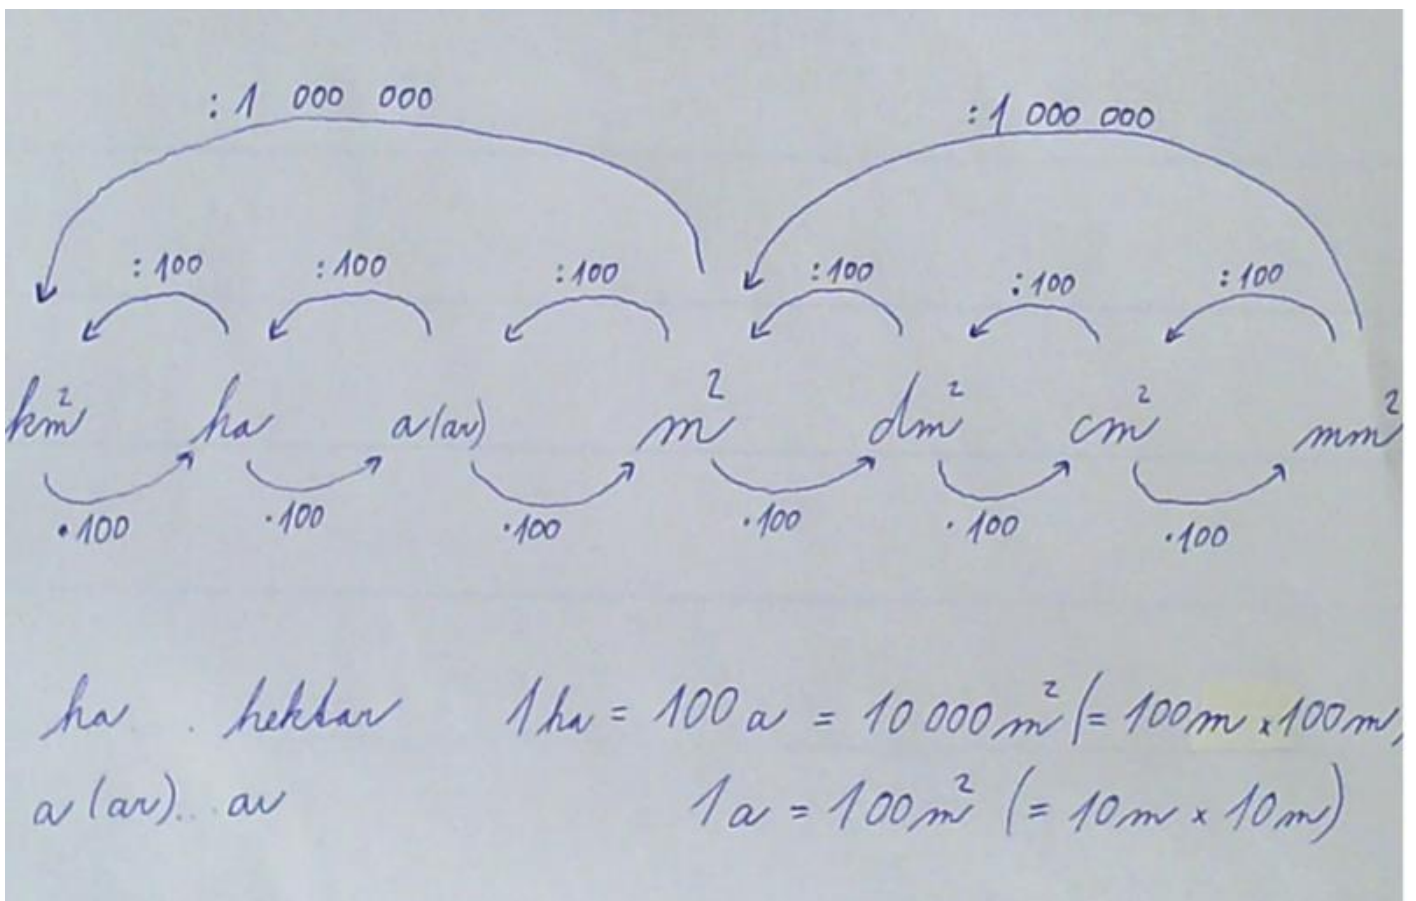 : 1 000 000 : 1 000 000
: 100 : 100 : 100 : 100 : 100 : 100
km² ha a(ar) m² dm² cm² mm²
· 100 · 100 · 100 · 100 · 100 · 100
ha . hektar 1 ha = 100 a = 10 000 m² (= 100 m x 100 m)
a (ar) .. ar 1 a = 100 m² (= 10 m x 10 m)